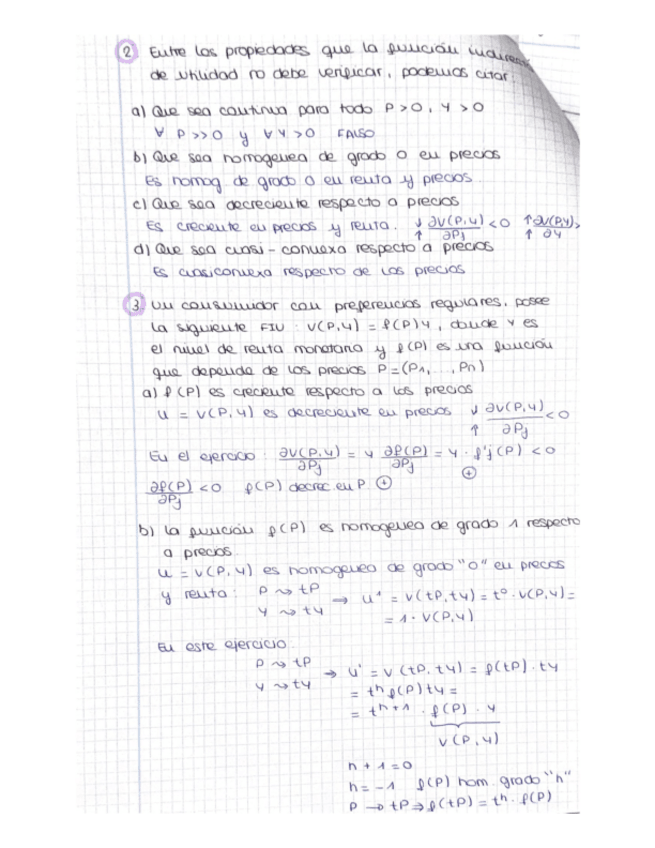 ② Entre las propiedades que la función indirecta
de utilidad no debe verificar, podemos citar:
a) Que sea continua para todo P > 0, Y > 0
∀ P >> 0 y ∀ Y > 0 FALSO
b) Que sea homogenea de grado 0 en precios
Es homog. de grado 0 en renta y precios
c) Que sea decreciente respecto a precios
Es creciente en precios y renta. ↓ ∂V(P,Y) < 0 ↑ ∂V(P,Y) >
↑ ∂Pj ↑ ∂Y
d) Que sea cuasi-convexa respecto a precios
Es cuasiconvexa respecto de los precios
③ Un consumidor con preferencias regulares, posee
la siguiente FIU: V(P,Y) = f(P)Y, donde Y es
el nivel de renta monetaria y f(P) es una función
que depende de los precios P=(P1,...,Pn)
a) f(P) es creciente respecto a los precios
u = V(P,Y) es decreciente en precios ↓ ∂V(P,Y) < 0
↑ ∂Pj
En el ejercicio: ∂V(P,Y)/∂Pj = Y ∂f(P)/∂Pj = Y · f'j(P) < 0
⊕
∂f(P)/∂Pj < 0 f(P) decrec. en P. ⊕
b) La función f(P) es homogenea de grado 1 respecto
a precios.
u = V(P,Y) es homogenea de grado "0" en precios
y renta: P ⇝ tP
Y ⇝ tY → u' = V(tP,tY) = t⁰ · V(P,Y) =
= 1 · V(P,Y)
En este ejercicio:
P ⇝ tP
Y ⇝ tY → u' = V(tP,tY) = f(tP) · tY
= tʰ f(P) tY =
= tʰ⁺¹ · f(P) · Y
V(P,Y)
h + 1 = 0
h = -1 f(P) hom. grado "h"
P → tP ⇒ f(tP) = tʰ · f(P)